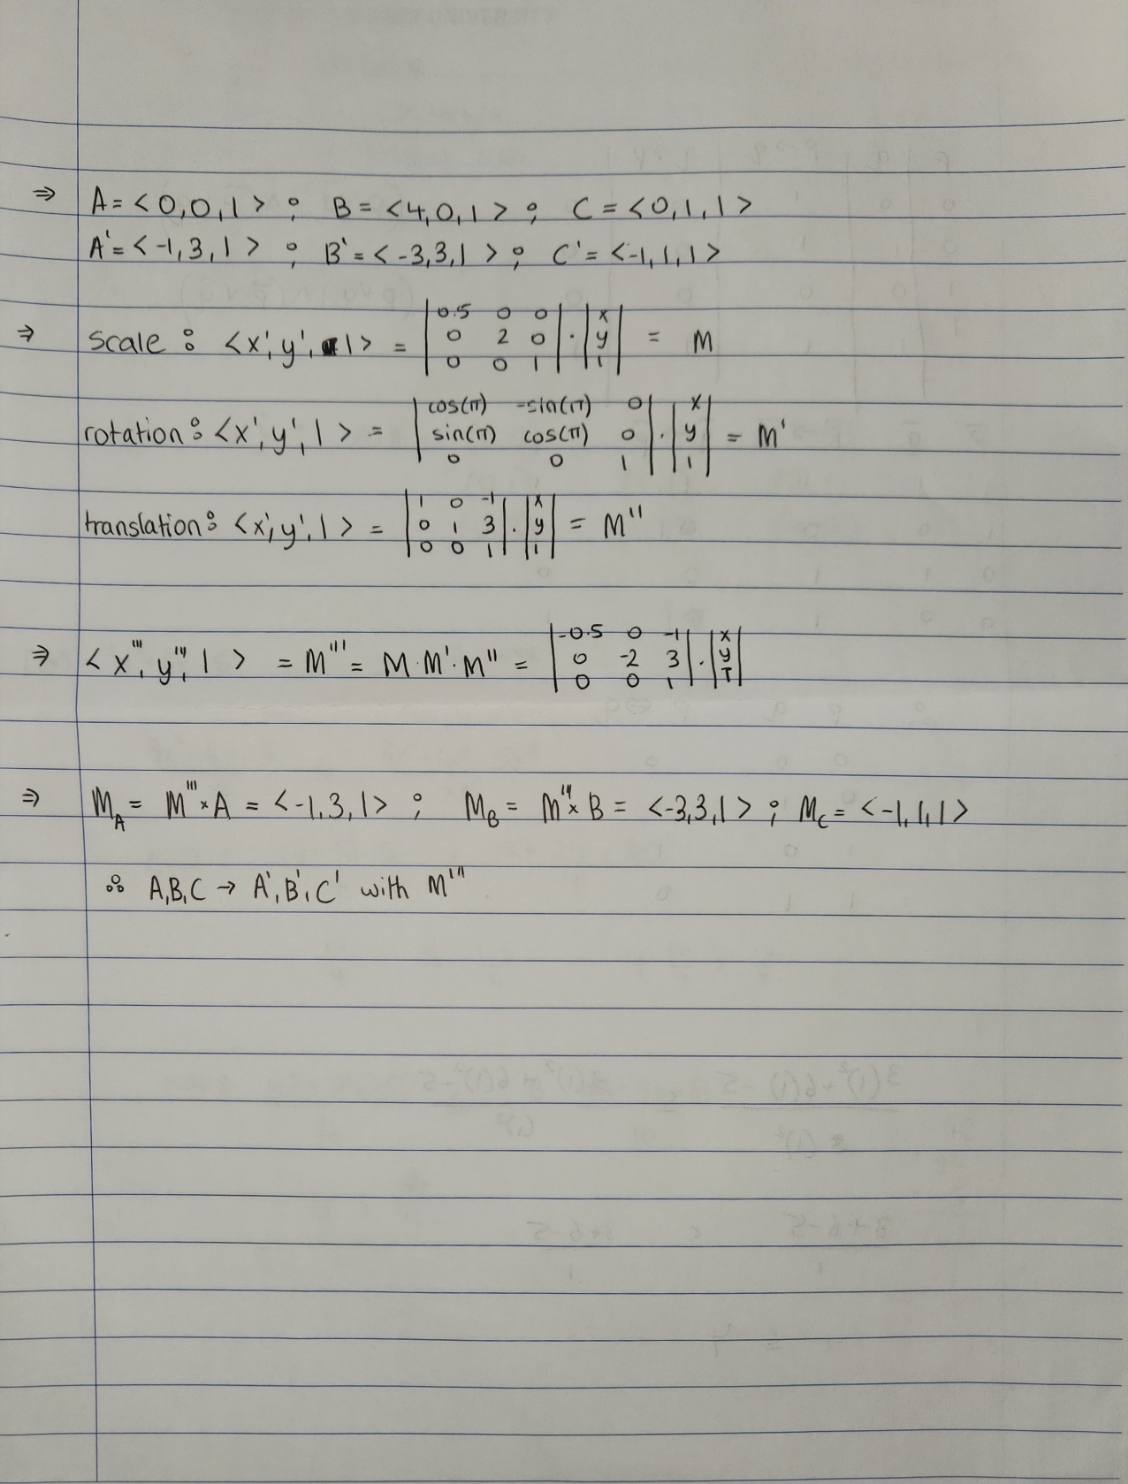 ⇒ A = <0,0,1> ; B = <4,0,1> ; C = <0,1,1>
A' = <-1,3,1> ; B' = <-3,3,1> ; C' = <-1,1,1>
⇒ scale : <x', y', 1> = |0.5 0 0; 0 2 0; 0 0 1| · |x; y; 1| = M
rotation : <x', y', 1> = |cos(π) -sin(π) 0; sin(π) cos(π) 0; 0 0 1| · |x; y; 1| = M'
translation : <x', y', 1> = |1 0 -1; 0 1 3; 0 0 1| · |x; y; 1| = M''
⇒ <x''', y''', 1> = M''' = M · M' · M'' = |-0.5 0 -1; 0 -2 3; 0 0 1| · |x; y; 1|
⇒ M_A = M''' × A = <-1,3,1> ; M_B = M''' × B = <-3,3,1> ; M_C = <-1,1,1>
∴ A,B,C → A',B',C' with M'''